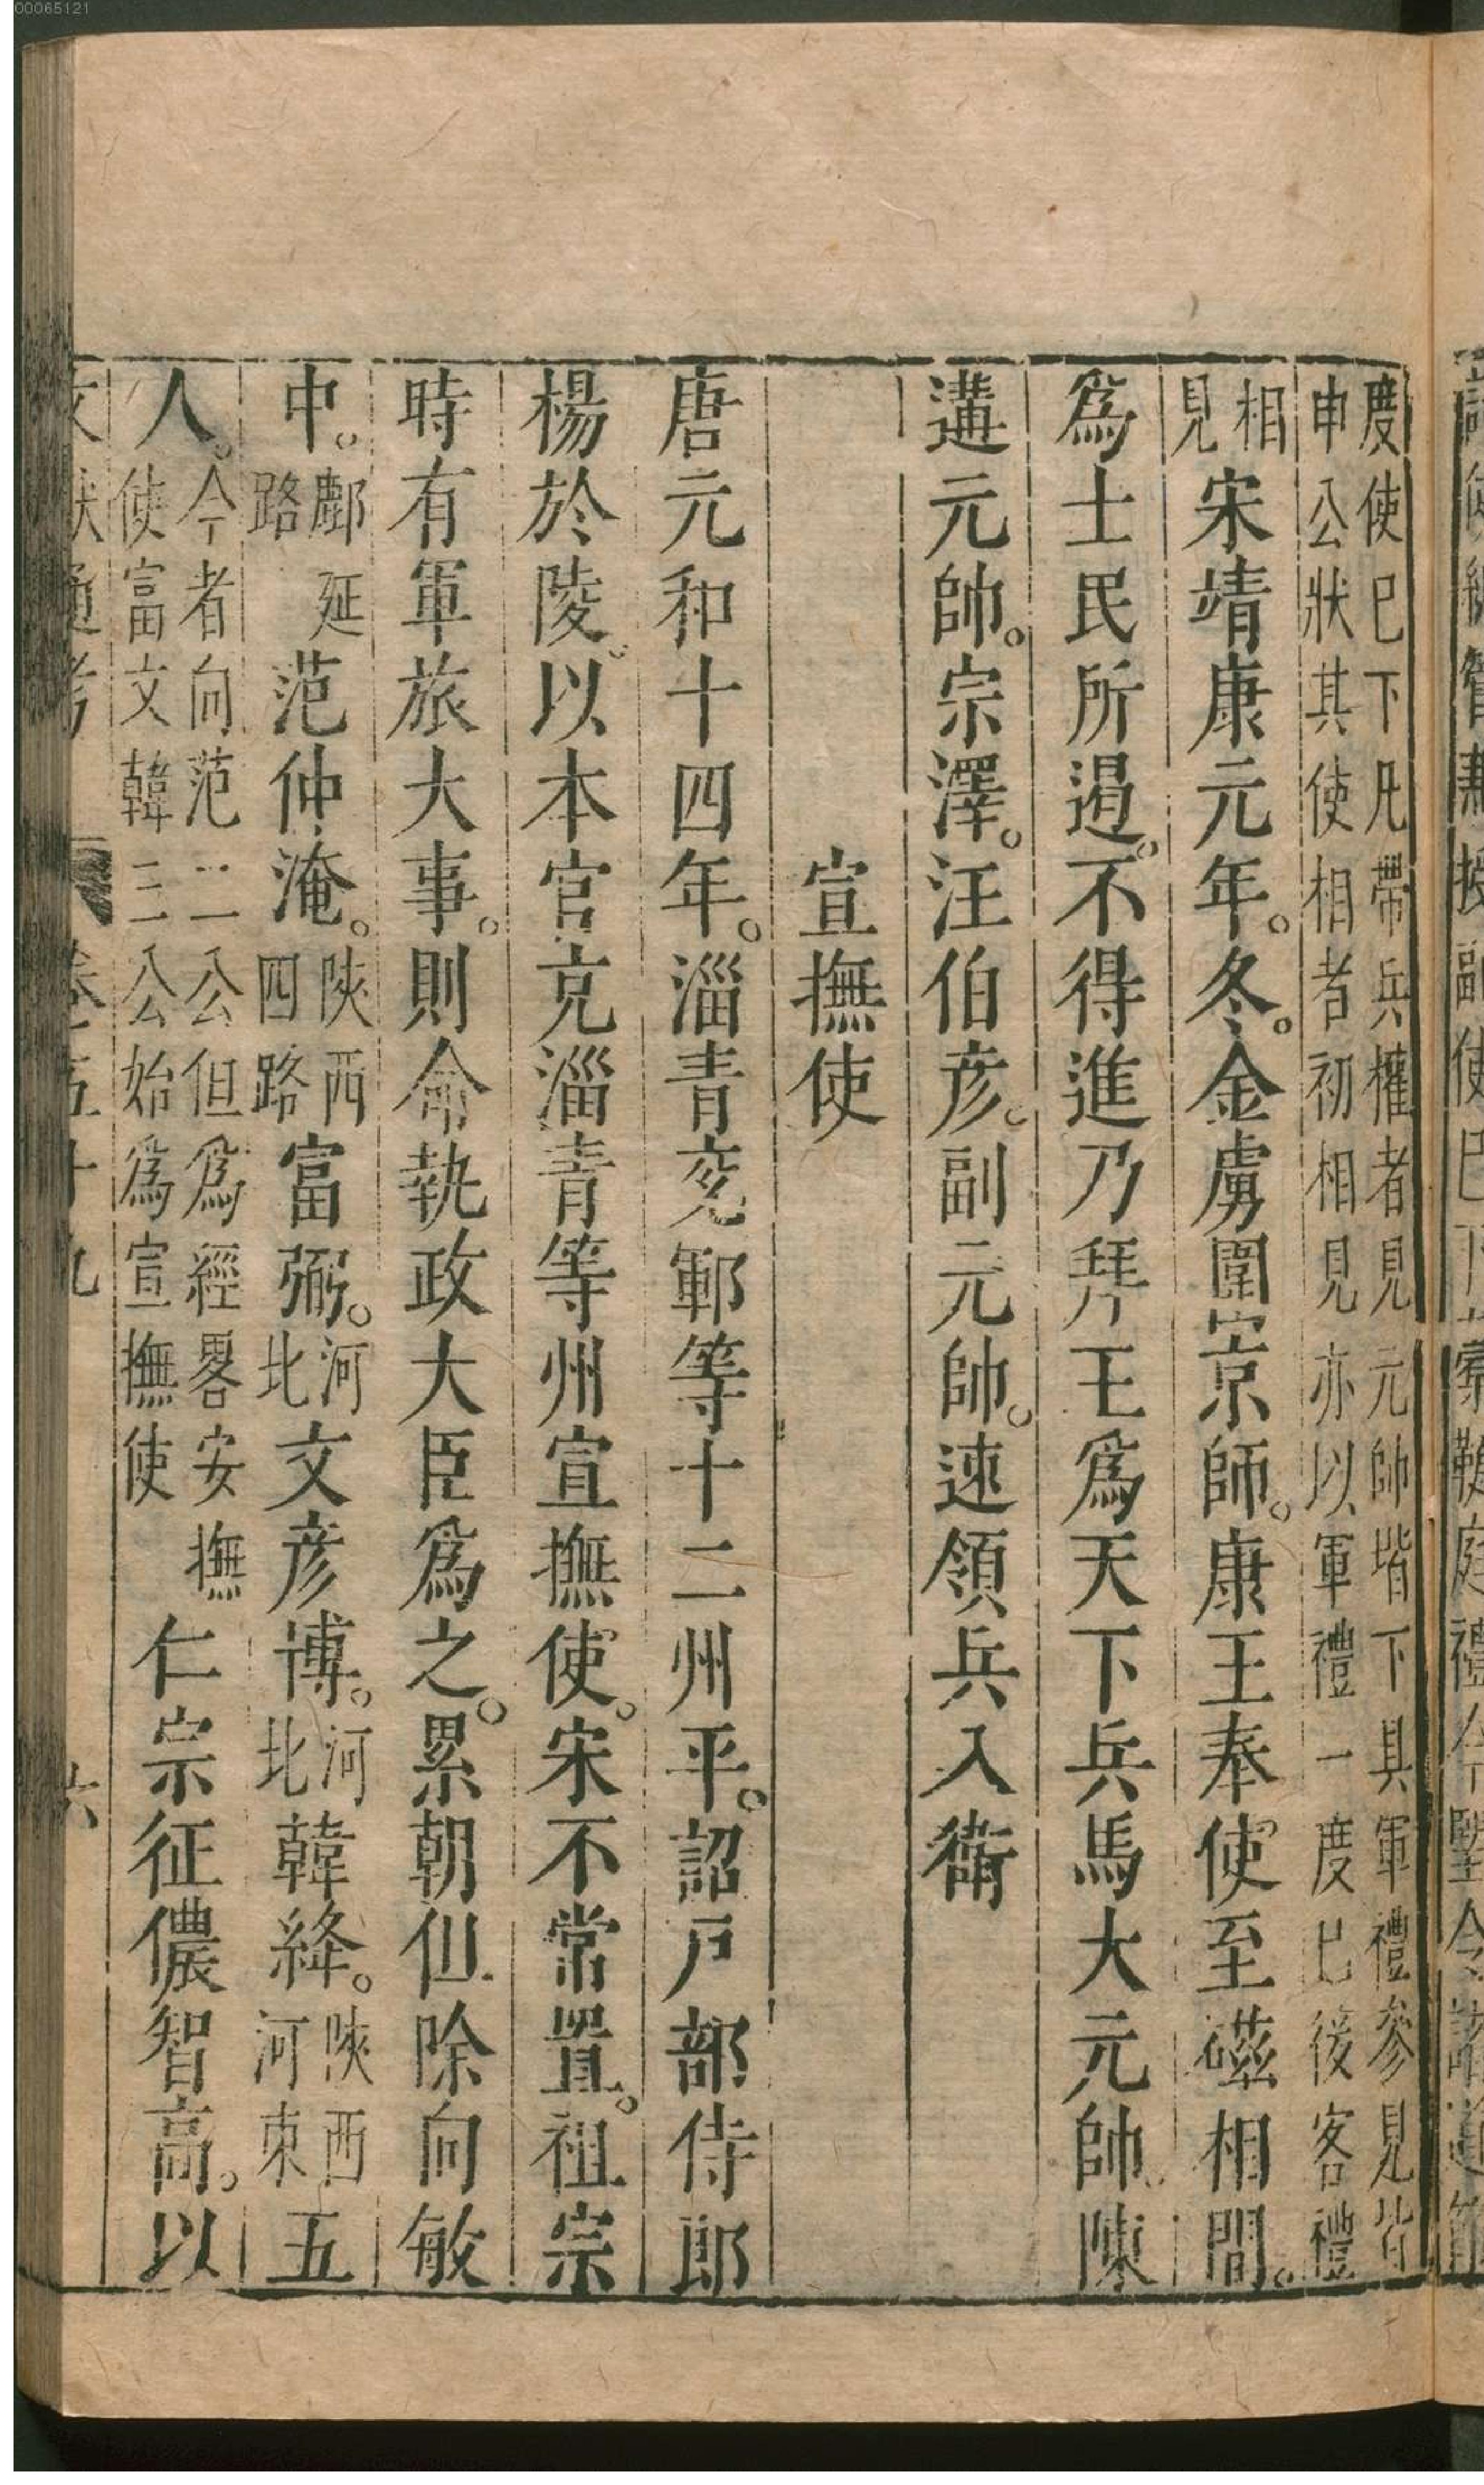 00065121
度使已下凡帶兵權者見元帥堦下具軍禮參見皆
申公狀其使相者初相見亦以軍禮一度已後客禮
相見宋靖康元年冬。金虜圍京師。康王奉使至磁相間。
爲士民所遏。不得進乃拜王爲天下兵馬大元帥。陳
遘元帥。宗澤。汪伯彥。副元帥。速領兵入衛
宣撫使
唐元和十四年。淄青兖鄆等十二州平。詔戸部侍郎
楊於陵。以本官充淄青等州宣撫使。宋不常置。祖宗
時有軍旅大事。則命執政大臣爲之。累朝但除向敏
中。鄜延路范仲淹。陝西四路富弼。河北文彥博。河北韓絳。陝西河東五
人。今者向范二公但爲經畧安撫使富文韓三公始爲宣撫使仁宗征儂智高。以
文獻通考 卷五十九 六